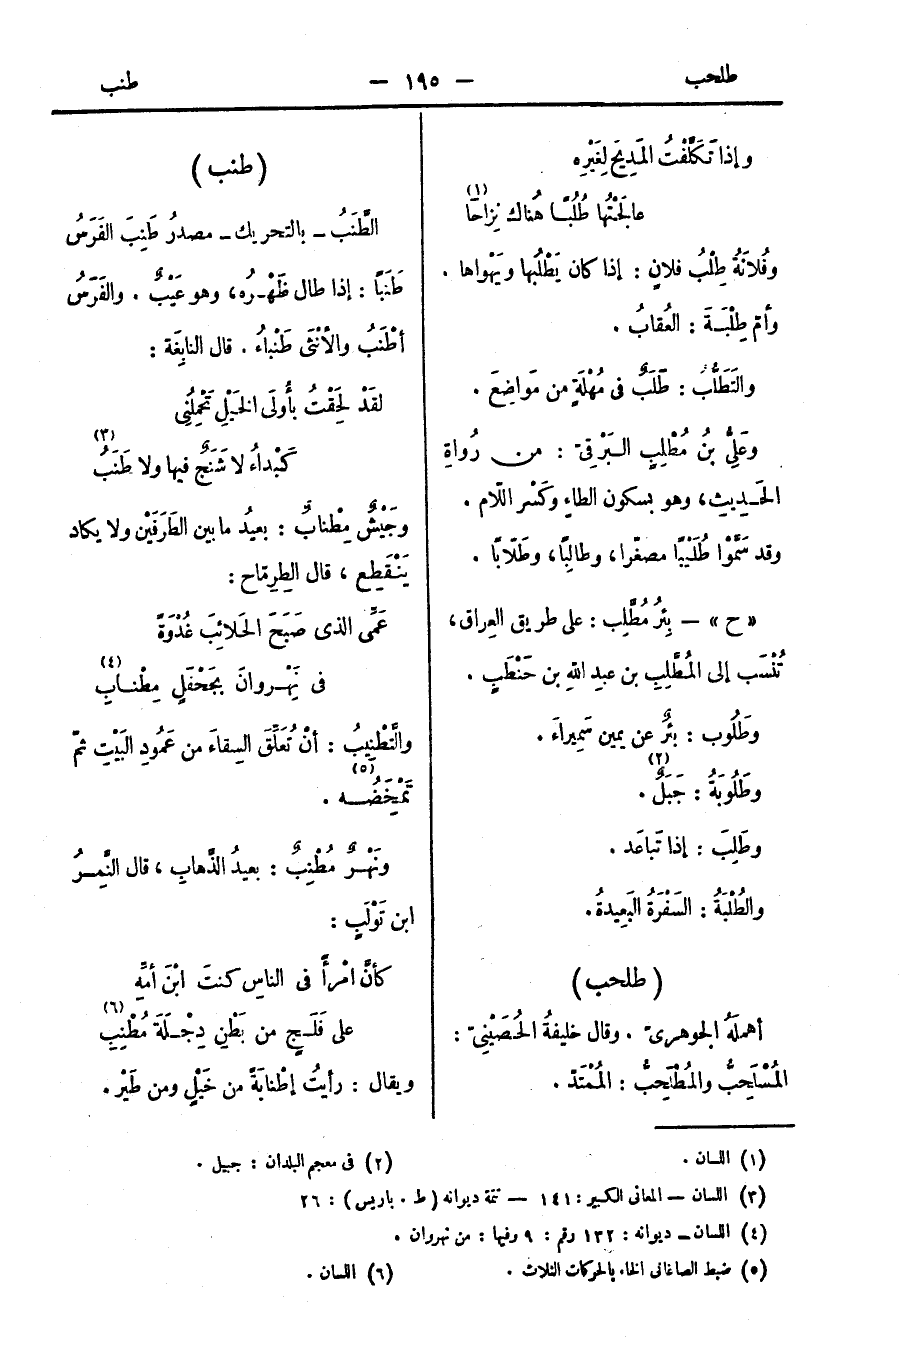 طلحب — ١٩٥ — طنب
وإذا تَكَلَّفْتُ المَدِيحَ لِغَيْرِه
عالَجْتُها طُلُبًا هُناك نِزاحَا (١)
وفُلانَةُ طِلْبُ فلانٍ : إذا كان يَطْلُبها ويَهْواها .
وأمّ طِلْبَةَ : العُقابُ .
والتَطَلُّب : طَلَبٌ فى مُهْلَةٍ من مَواضِعَ .
وعَلِيُّ بنُ مُطْلِبٍ البَرْقىّ : من رُواةِ
الحَديثِ، وهو بسكون الطاءِ وكَسْر اللّام .
وقد سَمَّوْا طُلَيْبًا مصغّرا، وطالِبًا، وطَلّابًا .
« ح » — بِئرُ مُطَّلِب : على طريق العِراق،
تُنْسَب إلى المُطَّلِبِ بن عبد اللهِ بن حَنْطَبٍ .
وطَلُوب : بئرٌ عن يمين سَمِيراءَ .
وطَلُوبَةُ : جَبَلٌ (٢) .
وطَلِبَ : إذا تَباعَد .
والطُلْبَةُ : السَفْرَةُ البَعِيدةُ .
( طلحب )
أهملَهُ الجوهرىّ . وقال خليفةُ الحُصَيْنىّ :
المُسْلَحِبُّ والمُطْلَحِبُّ : المُمْتَدّ .
( طنب )
الطَّنَبُ ــ بالتحريك ــ مصدرُ طَنِبَ الفَرَسُ
طَنَبًا : إذا طال ظَهْرُه، وهو عَيْبٌ . والفَرَسُ
أطْنَبُ والأُنْثَى طَنْباءُ . قال النابِغَة :
لقَدْ لَحِقْتُ بأُولَى الخَيْلِ تَحْمِلُنِى
كَبْداءُ لا شَنَجٌ فيها ولا طَنَبُ (٣)
وجَيْشٌ مِطْنابٌ : بعيدُ ما بين الطَرَفَيْن ولا يكاد
يَنْقَطِع ، قال الطِرِمّاح :
عَمِّى الذى صَبَحَ الحَلائِبَ غُدْوَةً
فى نَهْرَوانَ بجَحْفَلٍ مِطْنابِ (٤)
والتَّطْنِيبُ : أنْ تُعَلِّقَ السِقاءَ من عَمُودِ البَيْتِ ثمّ
تَمْخَضُه (٥) .
ونَهْرٌ مُطْنِبٌ : بعيدُ الذَّهابِ ، قال النَّمِرُ
ابن تَوْلَبٍ :
كأنَّ امْرأً فى الناسِ كنتَ ابْنَ أمِّهِ
على فَلَجٍ من بَطْنِ دِجْلَةَ مُطْنِبِ (٦)
ويقال : رأيتُ إطْنابَةً من خَيْلٍ ومن طَيْر .
(١) اللسان . (٢) فى معجم البلدان : جبيل .
(٣) اللسان — المعانى الكبير : ١٤١ — تتمة ديوانه ( ط . باريس ) : ٢٦
(٤) اللسان ــ ديوانه : ١٣٢ رقم : ٩ وفيها : من نهروان .
(٥) ضبط الصاغانى الخاء بالحركات الثلاث . (٦) اللسان .